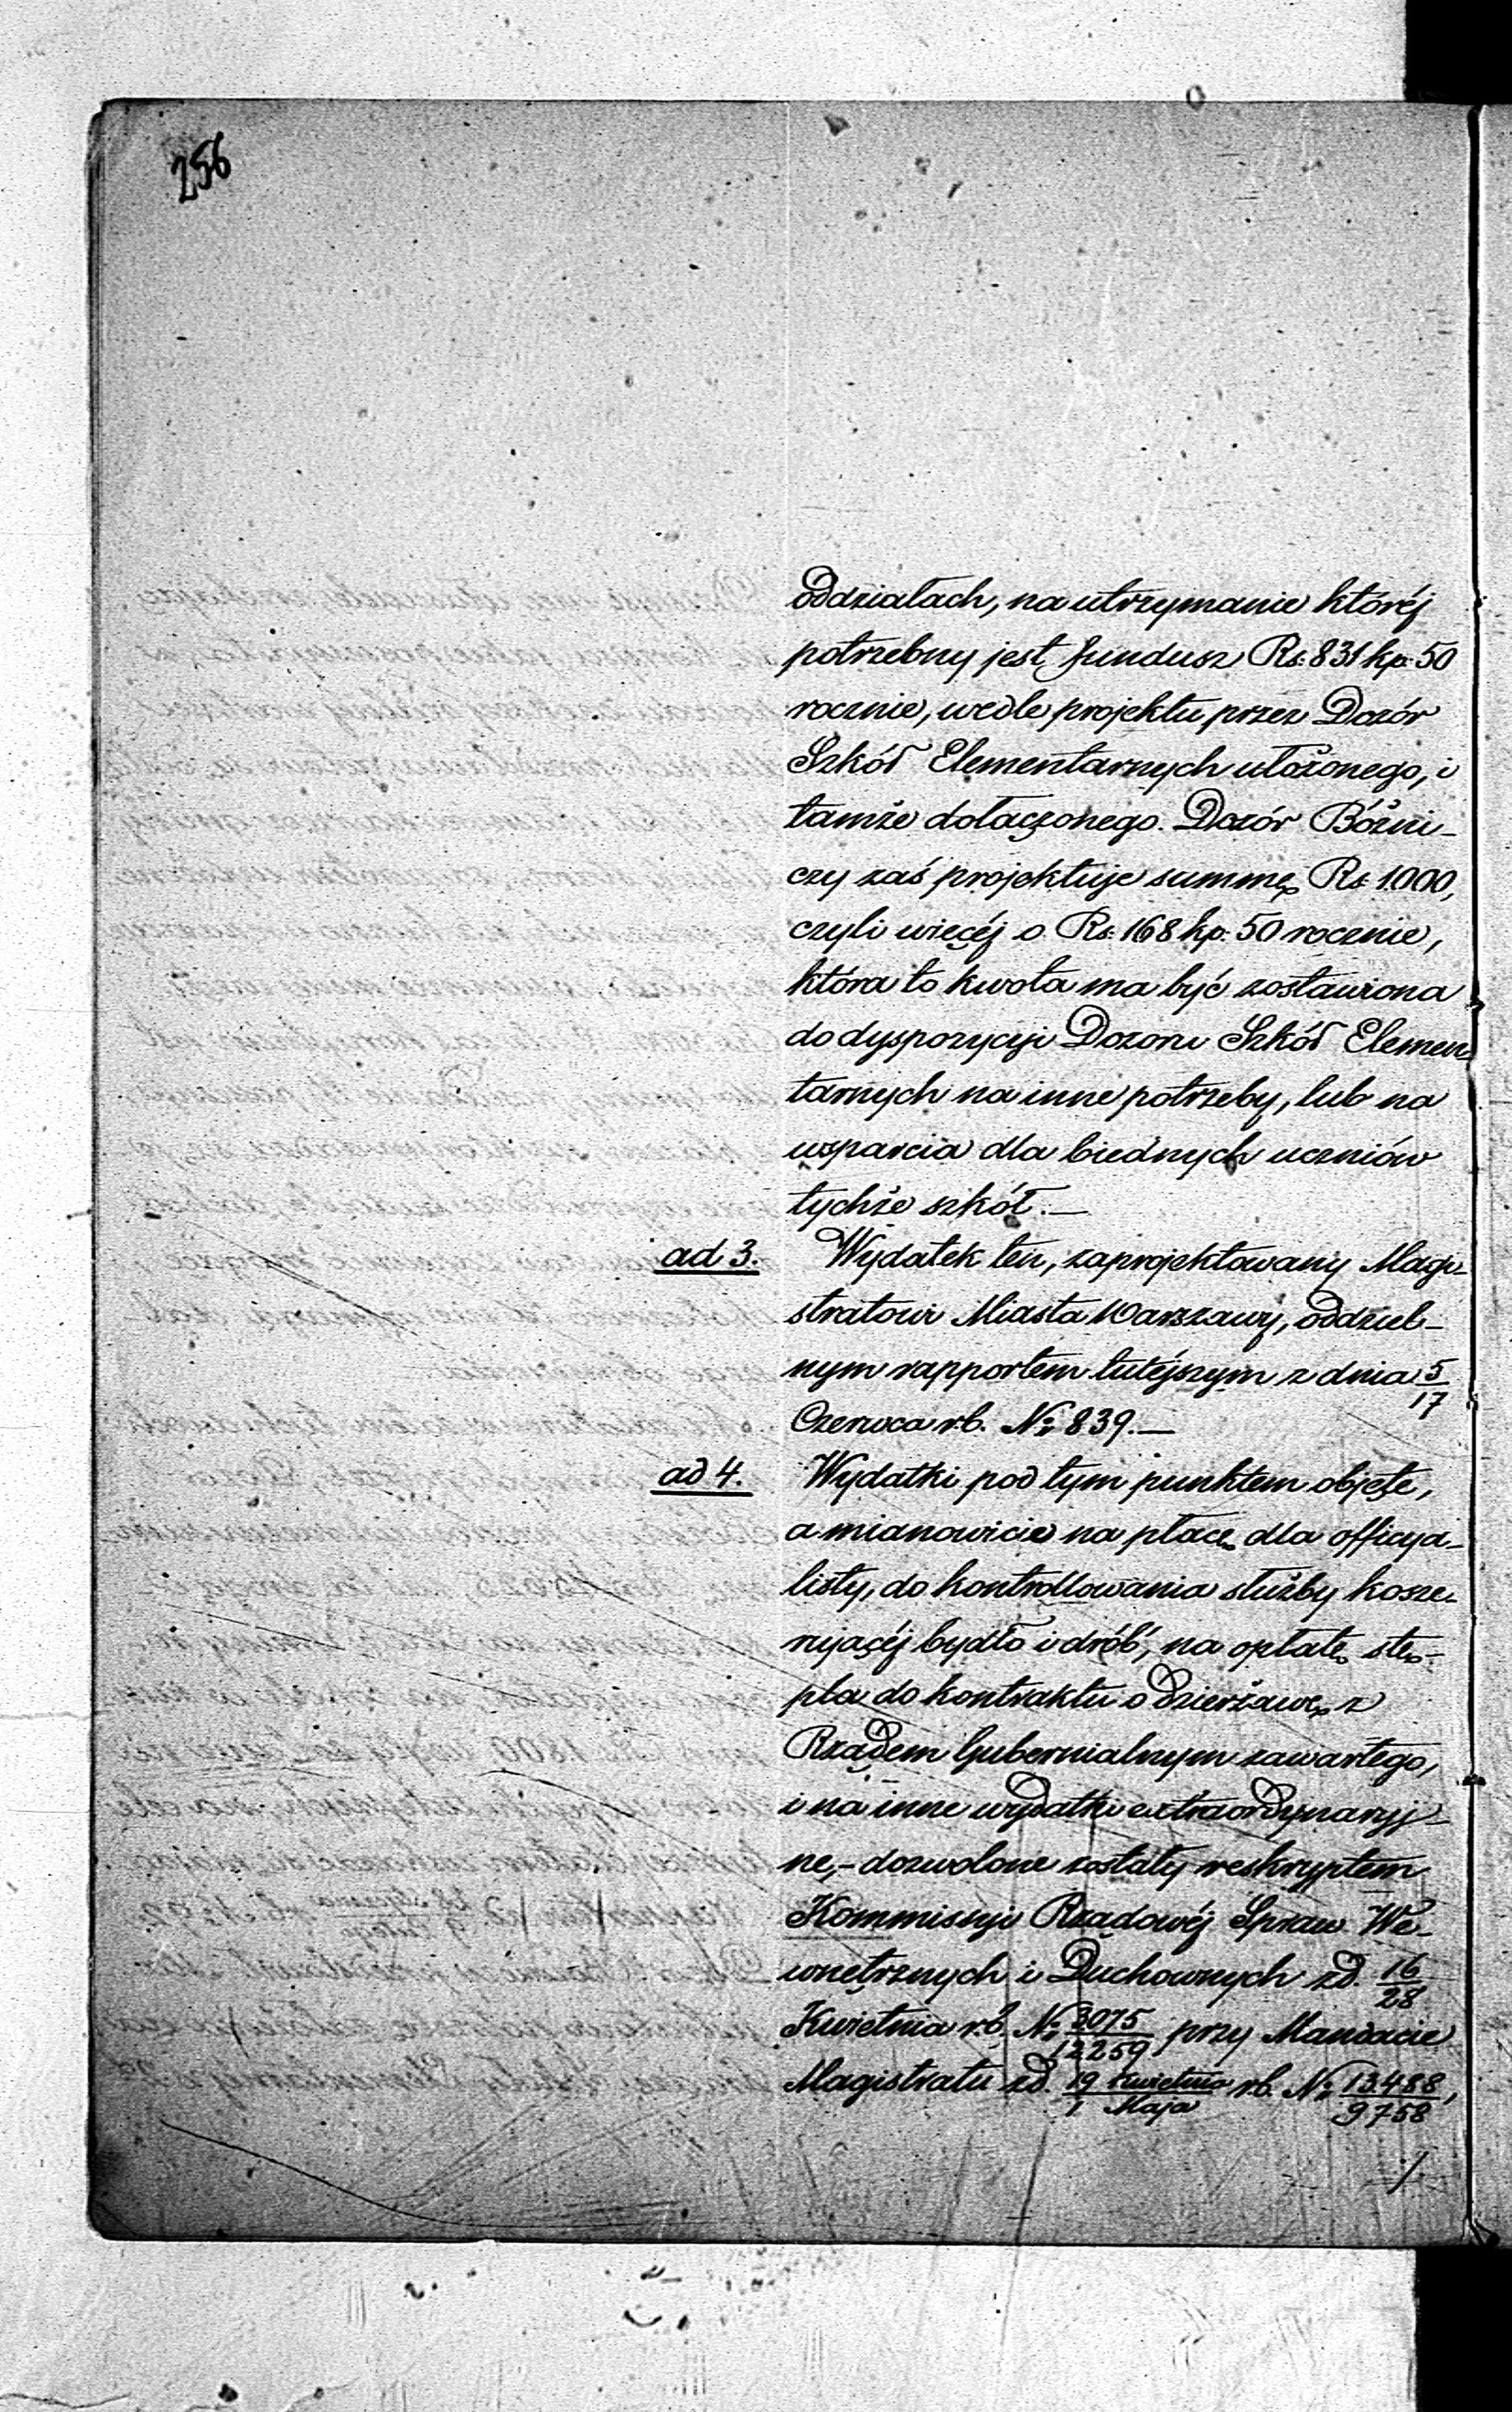 256
oddziałach, na utrzymanie któréj
potrzebny jest fundusz Rs: 831 kp: 50
rocznie, wedle projektu przez Dozór
Szkół Elementarnych ułożonego, i
tamże dołączonego. Dozór Bóżni-
czy zaś projektuje summę Rs 1000,
czyli więcéj o Rs: 168 kp: 50 rocznie,
która to kwota ma być zostawiona
do dyspozycyi Dozoru Szkół Elemen-
tarnych na inne potrzeby, lub na
wsparcia dla biednych uczniów
tychże szkół.—
ad 3. Wydatek ten, zaprojektowany Magi-
stratowi Miasta Warszawy, oddziel-
nym rapportem tutéjszym z dnia 5/17
Czerwca r.b. № 839.—
ad 4. Wydatki pod tym punktem objęte,
a mianowicie na płacę dla officya-
listy, do kontrollowania służby kosze-
rującéj bydło i drób', na opłatę stę-
pla do kontraktu o dzierżawę z
Rządem Gubernialnym zawartego,
i na inne wydatki extraordynaryj-
ne,- dozwolone zostały reskryptem
Kommissyi Rządowéj Spraw We-
wnętrznych i Duchownych z d. 16/28
Kwietnia r.b. № 3075/12259 przy Mandacie
Magistratu z d. 19 Kwietnia/1 Maja r.b. № 13488/9758,
./.